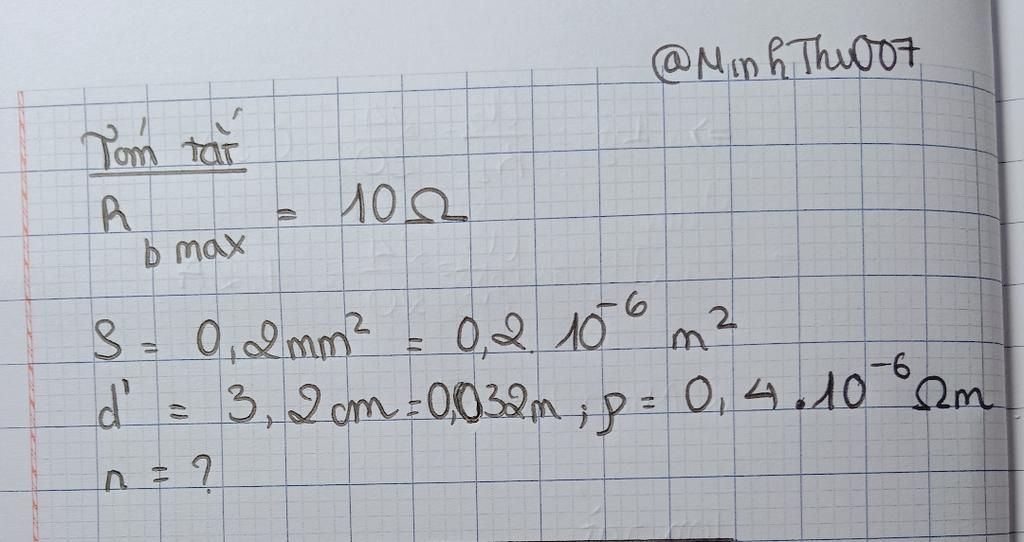 @MinhThu007
Tóm tắt
R b max = 10Ω
S = 0,2mm² = 0,2. 10⁻⁶ m²
d' = 3,2cm=0,032m ; ρ = 0,4.10⁻⁶ Ωm
n = ?